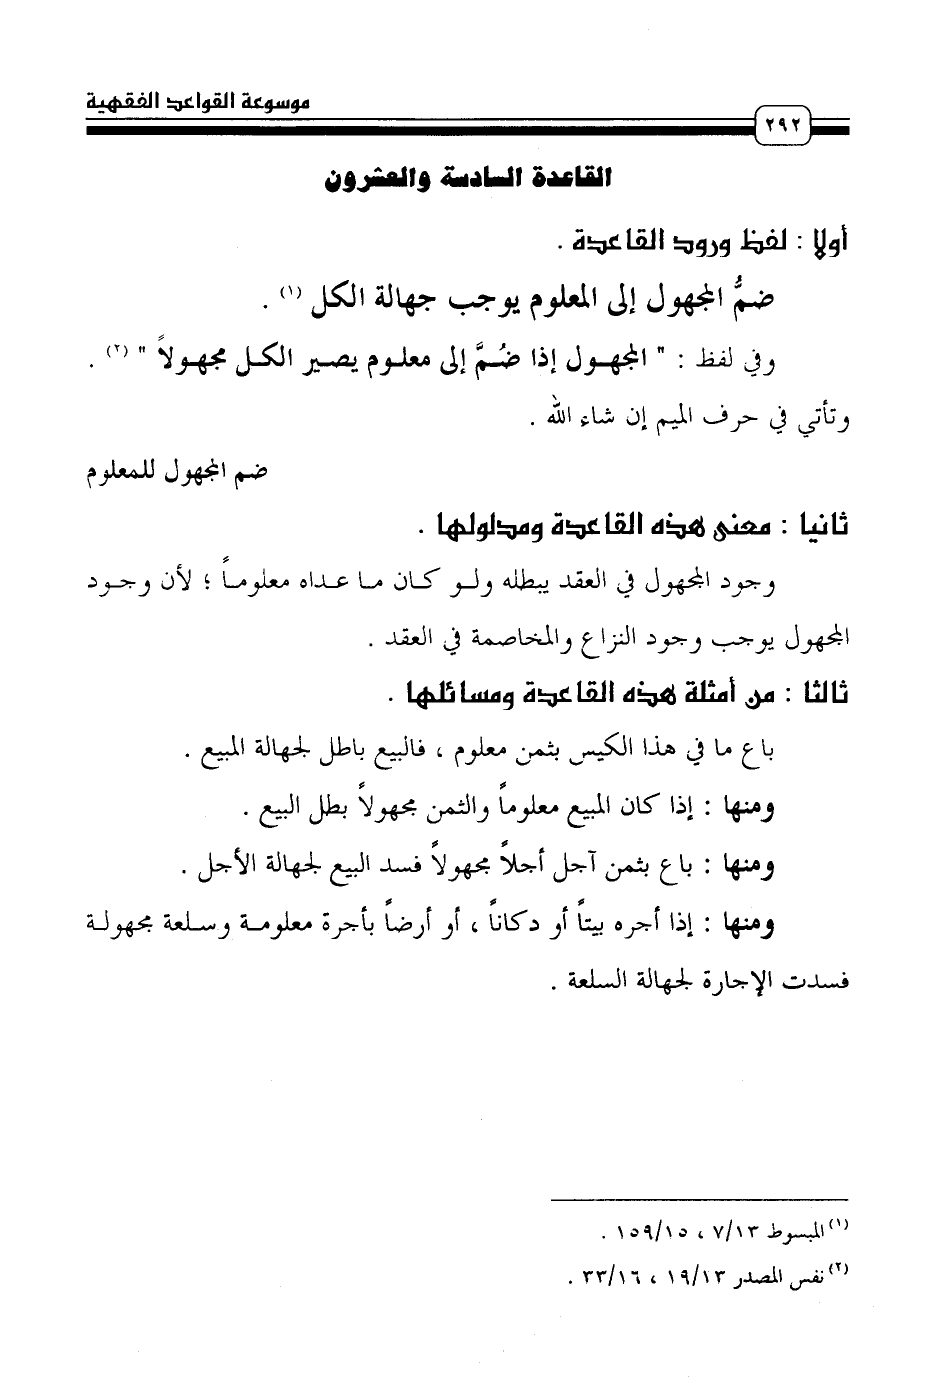 موسوعة القواعد الفقهية
٢٩٢
القاعدة السادسة والعشرون
أولا : لفظ ورود القاعدة .
ضمُّ المجهول إلى المعلوم يوجب جهالة الكل (١) .
وفي لفظ : " المجهول إذا ضُمَّ إلى معلوم يصير الكل مجهولاً " (٢) .
وتأتي في حرف الميم إن شاء الله .
ضم المجهول للمعلوم
ثانيا : معنى هذه القاعدة ومدلولها .
وجود المجهول في العقد يبطله ولو كان ما عداه معلوماً ؛ لأن وجود
المجهول يوجب وجود النزاع والمخاصمة في العقد .
ثالثا : من أمثلة هذه القاعدة ومسائلها .
باع ما في هذا الكيس بثمن معلوم ، فالبيع باطل لجهالة المبيع .
ومنها : إذا كان المبيع معلوماً والثمن مجهولاً بطل البيع .
ومنها : باع بثمن آجل أجلاً مجهولاً فسد البيع لجهالة الأجل .
ومنها : إذا أجره بيتاً أو دكاناً ، أو أرضاً بأجرة معلومة وسلعة مجهولة
فسدت الإجارة لجهالة السلعة .
(١) المبسوط ٧/١٣ ، ١٥٩/١٥ .
(٢) نفس المصدر ١٩/١٣ ، ٣٣/١٦ .